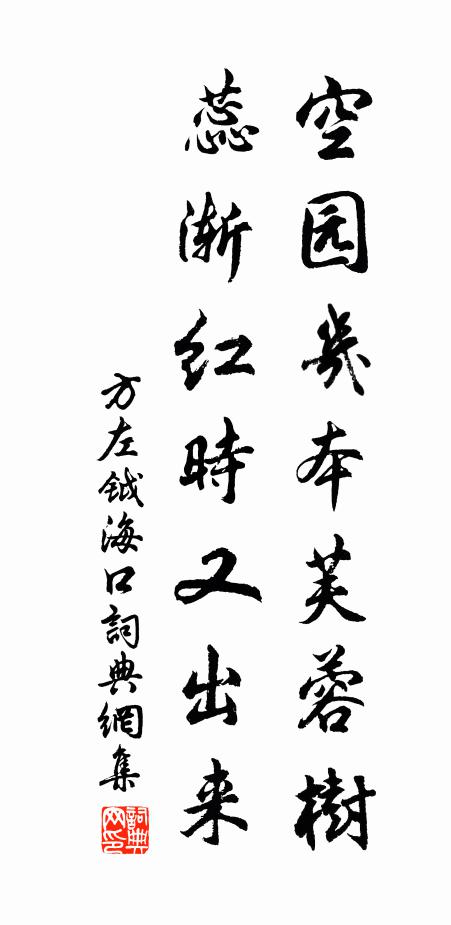 空园幾本芙蓉樹
蕊渐红時又出来
方左钺海口詞典網集
詞典网印